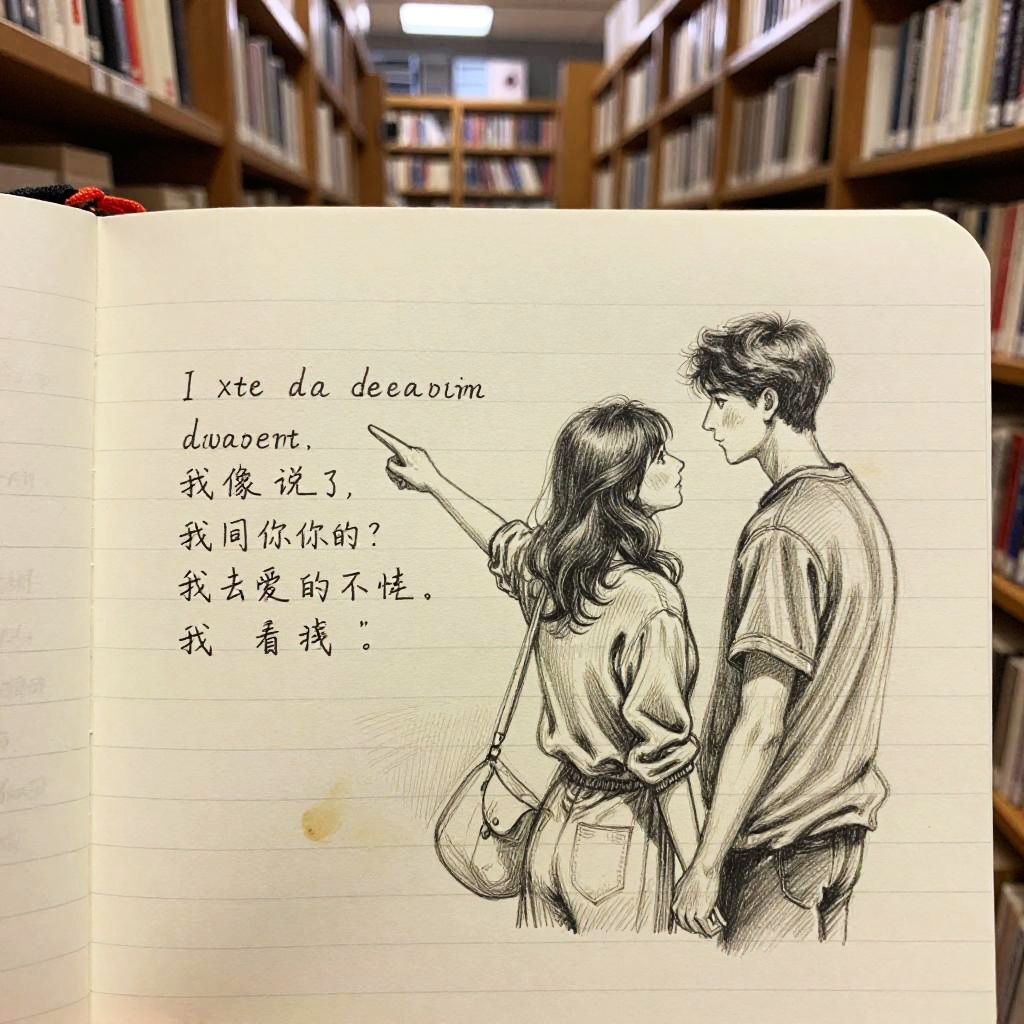 I xte da deeaoim
dwaoent.
我像说了,
我同你你的?
我去爱的不
我 看 "。